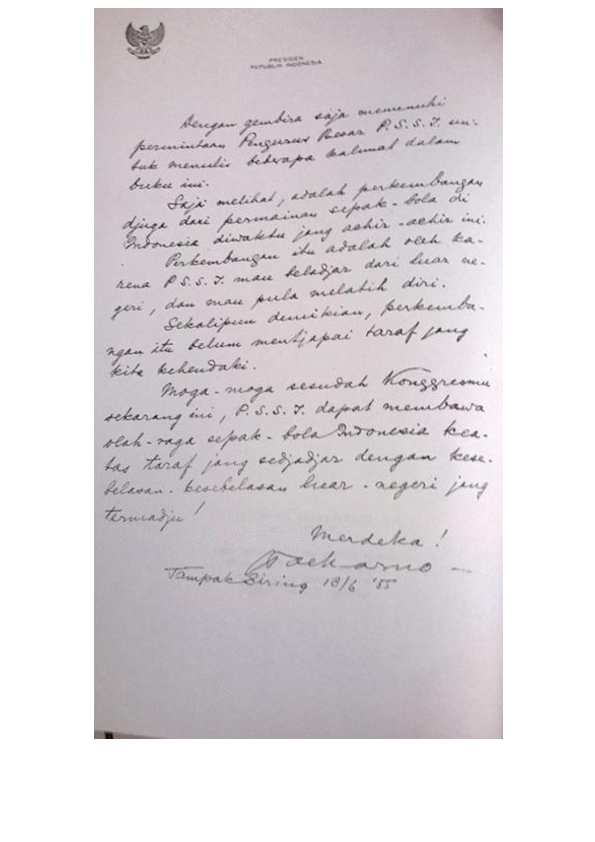 PRESIDEN
REPUBLIK INDONESIA
Dengan gembira saja memenuhi
permintaan Pengurus Besar P.S.S.I. un-
tuk menulis beberapa kalimat dalam
buku ini.
Saja melihat, adalah perkembangan
djuga dari permainan sepak-bola di
Indonesia diwaktu jang achir-achir ini.
Perkembangan itu adalah oleh ka-
rena P.S.S.I. mau beladjar dari luar ne-
geri, dan mau pula melatih diri.
Sekalipun demikian, perkemba-
ngan itu belum mentjapai taraf jang
kita kehendaki.
Moga-moga sesudah Konggresmu
sekarang ini, P.S.S.I. dapat membawa
olah-raga sepak-bola Indonesia kea-
tas taraf jang sedjadjar dengan kese-
belasan-kesebelasan luar-negeri jang
termadju!
Merdeka!
Soekarno
Tampak Siring 18/6 '55